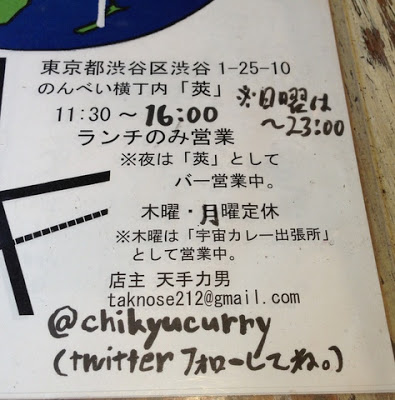 東京都渋谷区渋谷 1-25-10
のんべい横丁内「莢」
11:30 ～ 16:00
※日曜は
～23:00
ランチのみ営業
※夜は「莢」として
バー営業中。
木曜・月曜定休
※木曜は「宇宙カレー出張所」
として営業中。
店主 天手力男
taknose212@gmail.com
@chikyucurry
(twitterフォローしてね。)